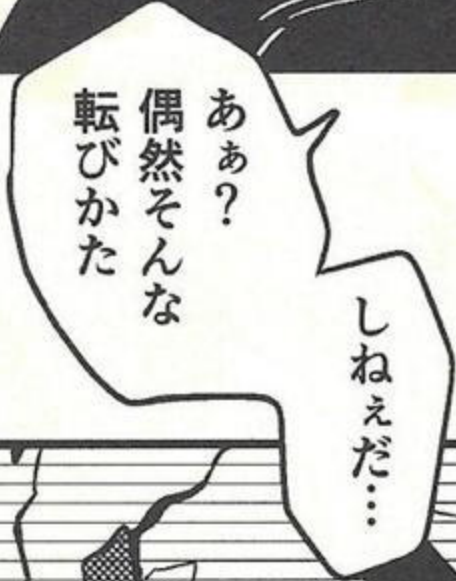 あぁ？
偶然そんな
転びかた
しねぇだ…